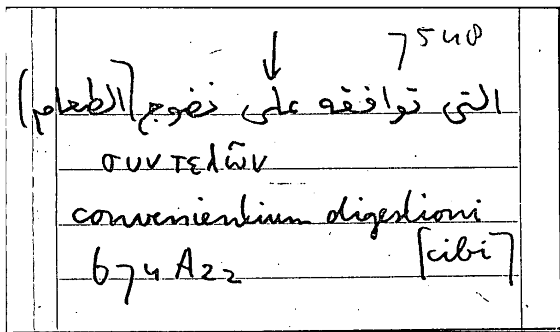 7548
↓
التى توافقه على نضوج [الطعام]
συντελῶν
convenientium digestioni
[cibi]
674 A22